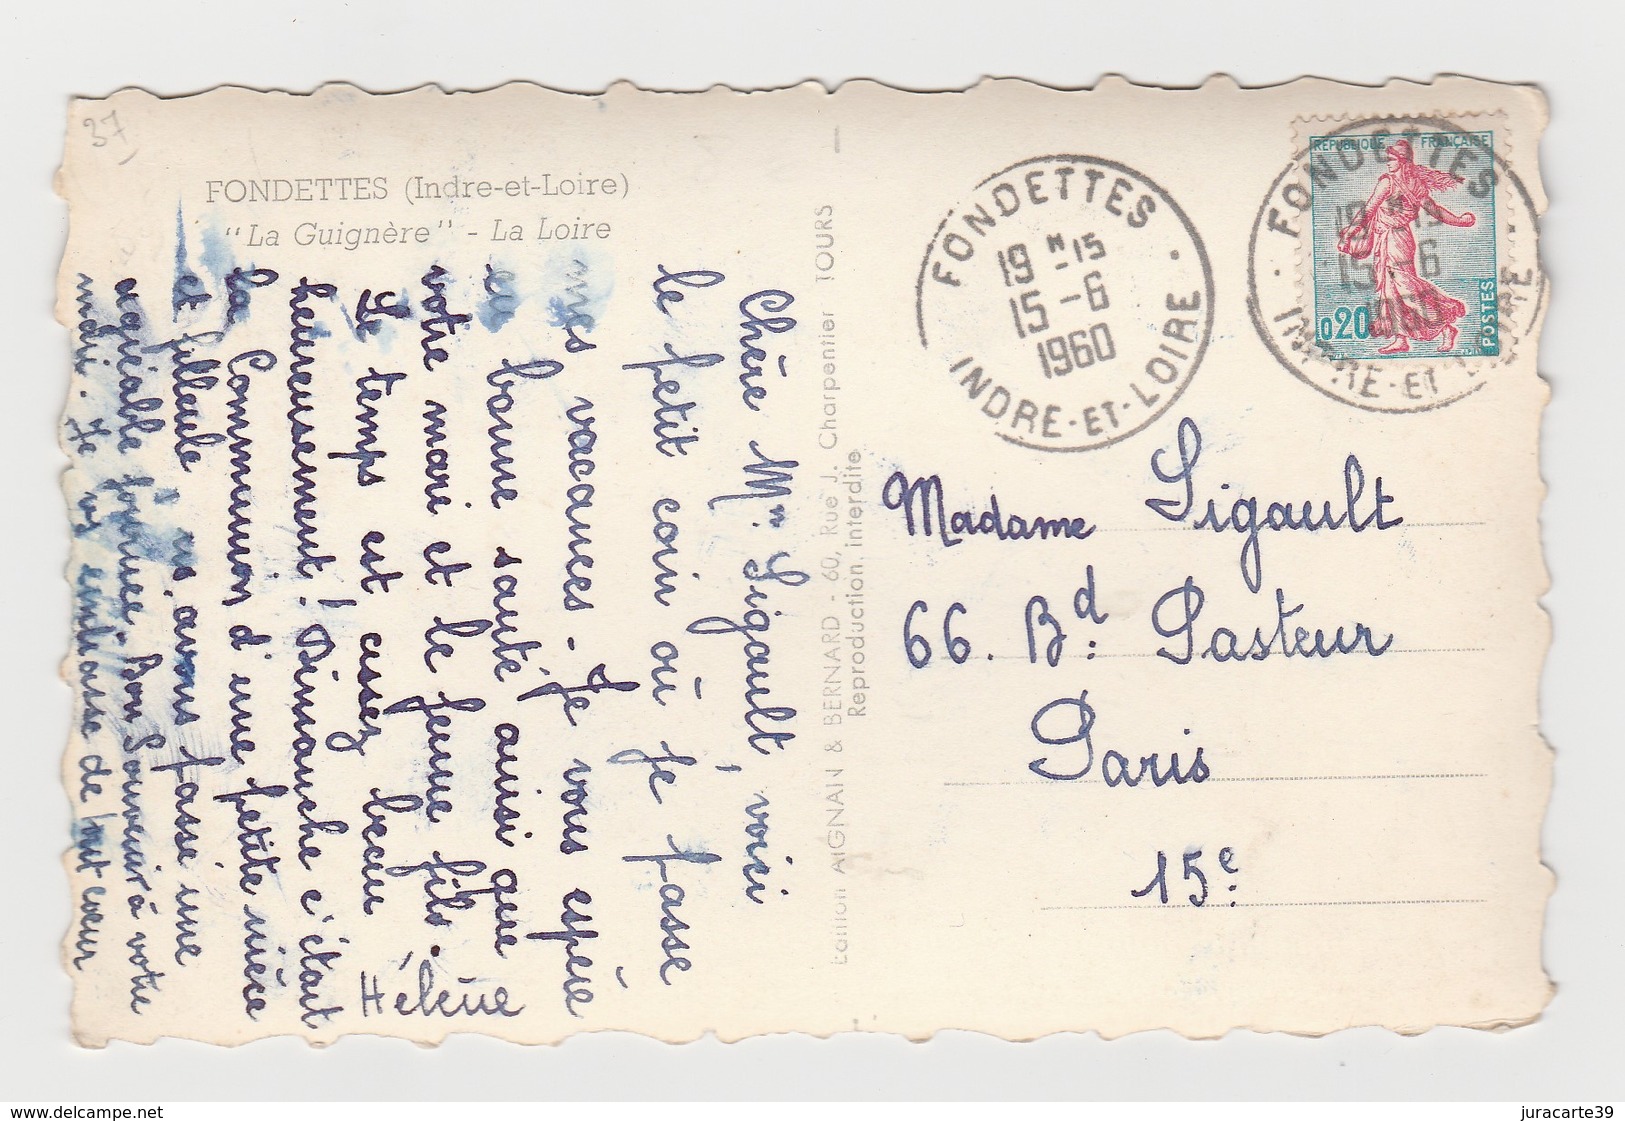 37
FONDETTES (Indre-et-Loire)
"La Guignère" - La Loire
Chère Mᵐ Sigault, voici
le petit coin où je passe
mes vacances - Je vous espère
en bonne santé ainsi que
votre mari et le jeune fils.
Le temps est assez beau
heureusement! Dimanche c'était
la Communion d'une petite nièce
et filleule à ns, avons passé une
agréable journée. Bon Souvenir à votre
mari. Je vs embrasse de tout cœur
Hélène
Edition AIGNAN & BERNARD - 60, Rue J. Charpentier TOURS
Reproduction interdite
FONDETTES
19 H 15
15 - 6
1960
INDRE-ET-LOIRE
FONDETTES
19 H 15
15 - 6
1960
INDRE-ET-LOIRE
REPUBLIQUE FRANÇAISE
0,20
POSTES
Madame Sigault
66. Bd: Pasteur
Paris
15e
www.delcampe.net
juracarte39